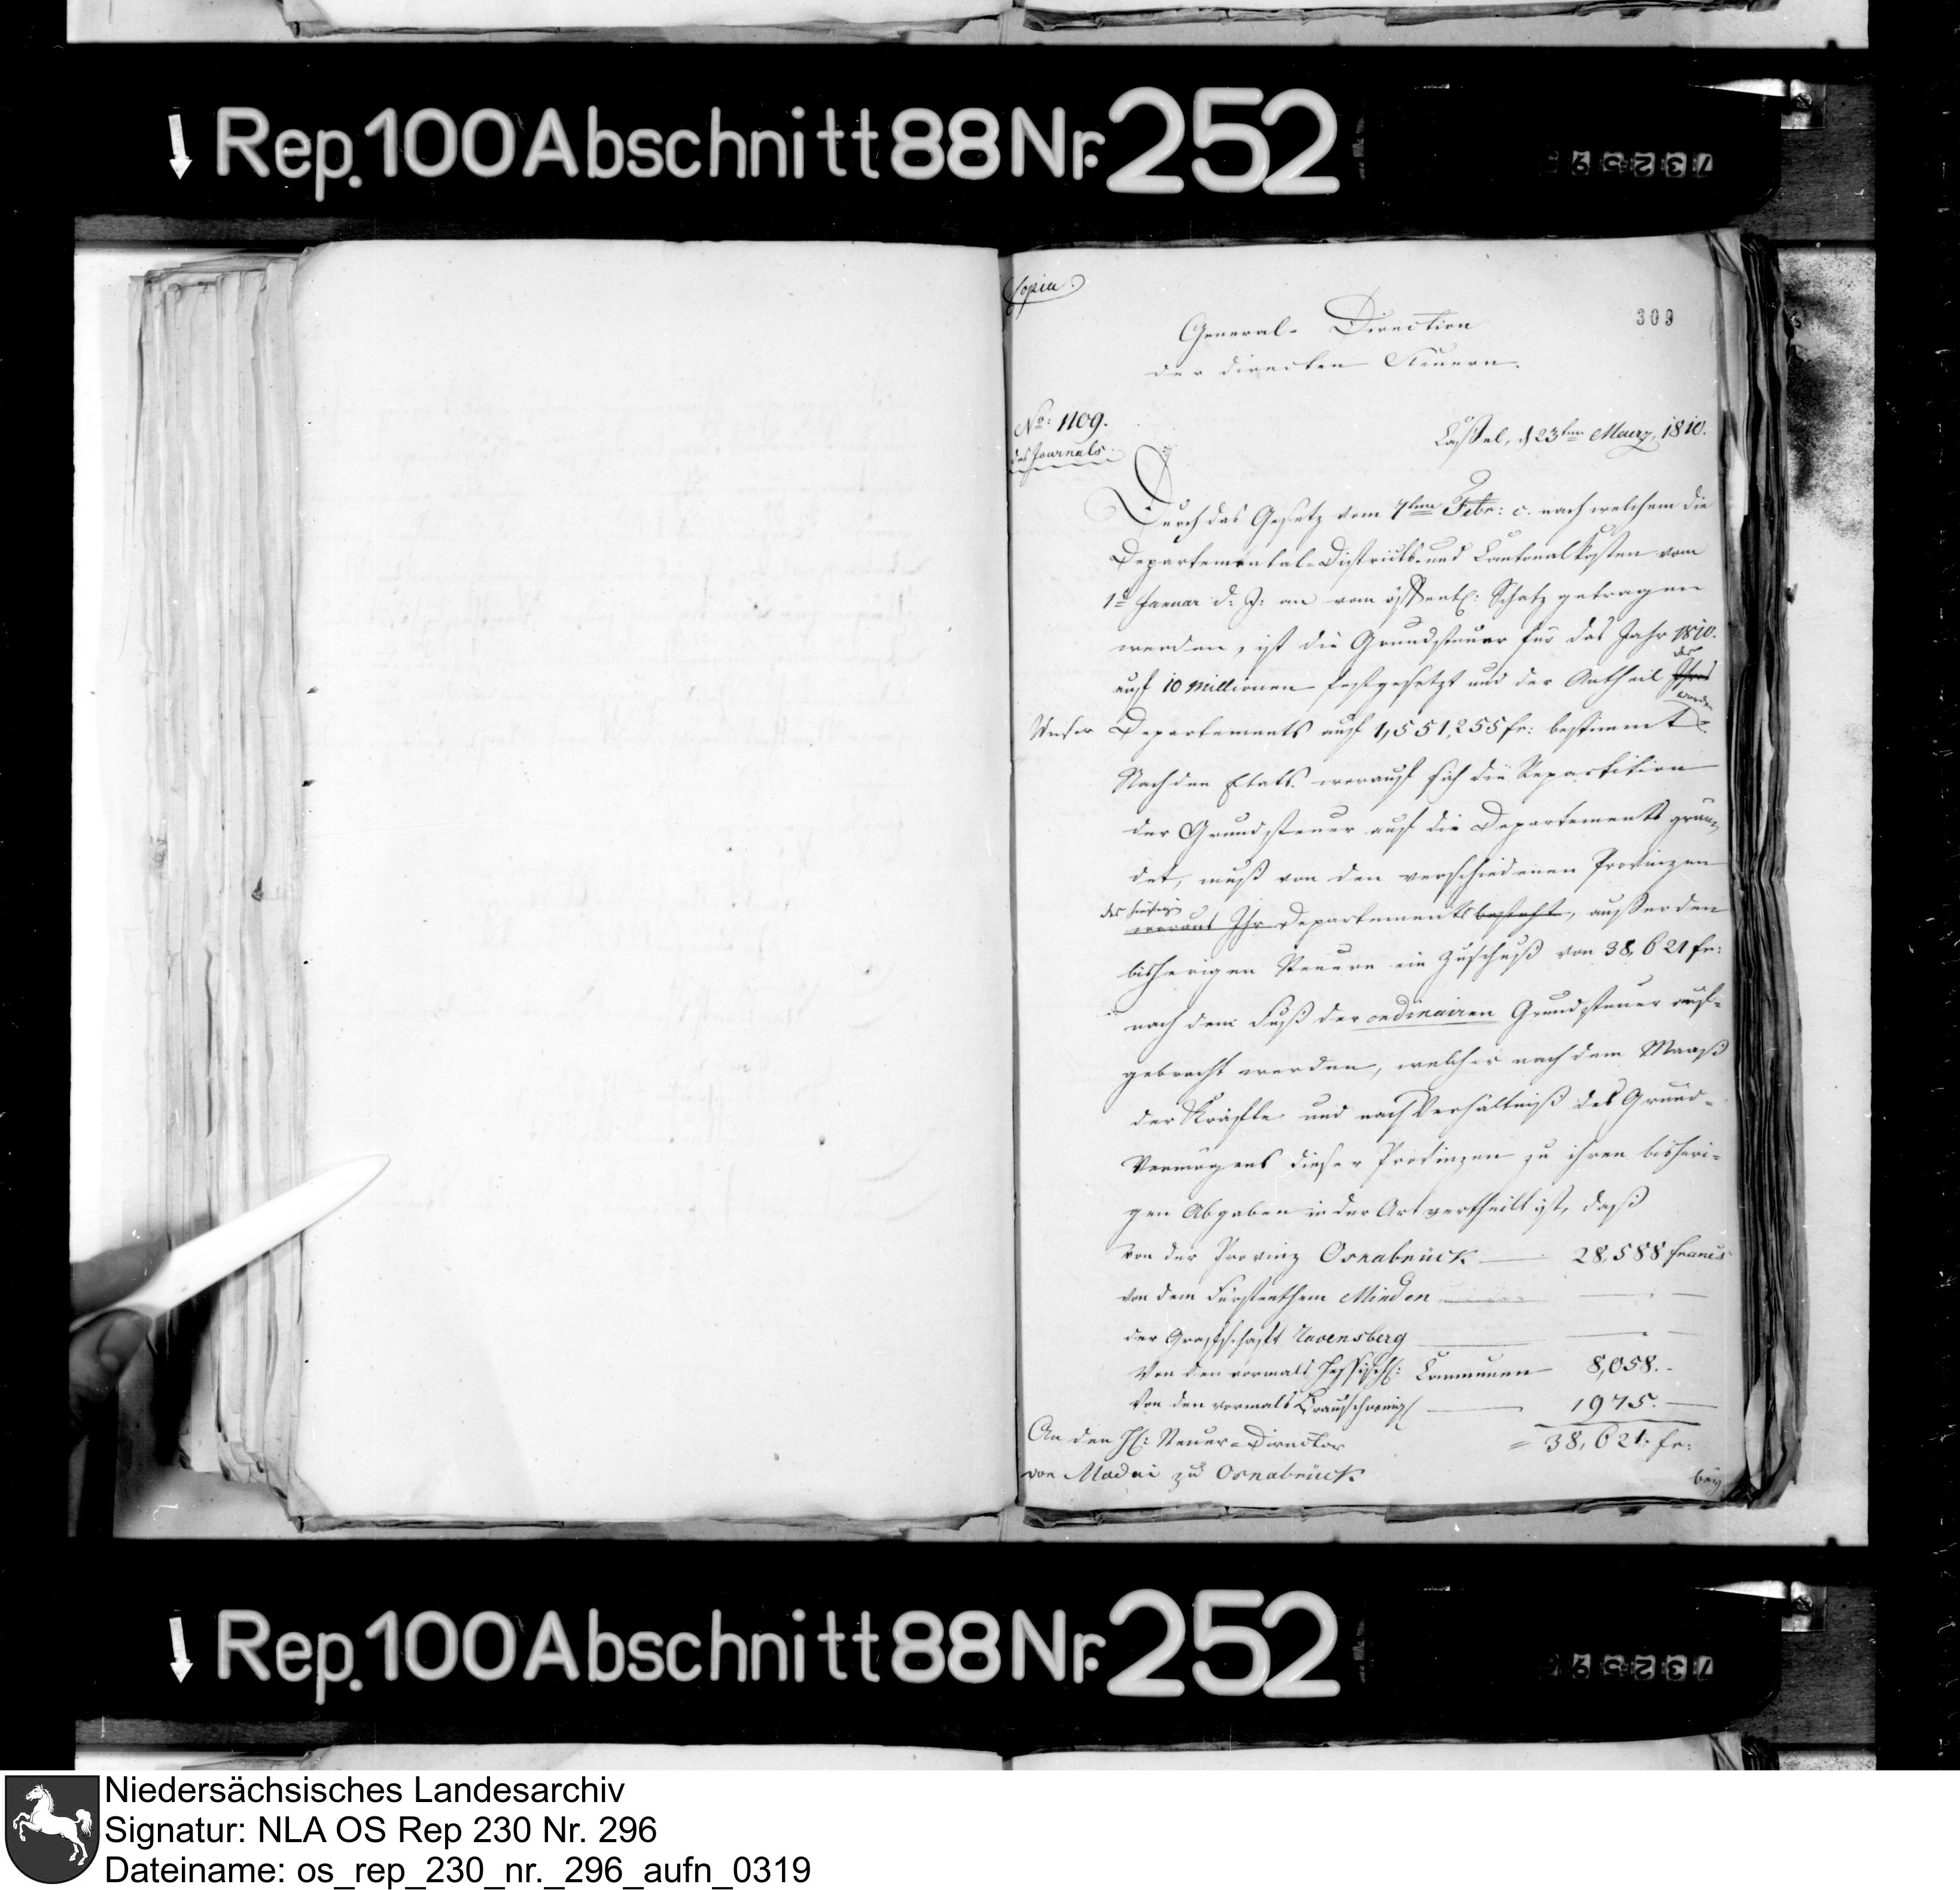 Rep. 100 Abschnitt 88 Nr. 252
73259
Copia.
309
General-Direction
der directen Steuern.
No: 1109.
des Journals.
Cassel, d 23ten Maerz, 1810.
Durch das Gesetz vom 7ten Febr: c. nach welchem die
Departemental-Districts- und Cantonalkosten vom
1t Januar d. J: an vom öffentl: Schatz getragen
werden, ist die Grundsteuer für das Jahr 1810.
auf 10 Millionen festgesetzt und der Antheil Ihres des
Weser Departements auf 1,551,255 fr: bestimmt worden.
Nach den Etats worauf sich die Repartition
der Grundsteuer auf die Departements grün
det, muß von den verschiedenen Provinzen
des hiesigen
woraus Ihr Departements besteht, außer den
bisherigen Steuern ein Zuschuß von 38,621 fr:
nach dem Fuß der ordinairen Grundsteuer auf-
gebracht werden, welcher nach dem Maaß
der Kräfte und nach Verhältniß des Grund-
Vermögens dieser Provinzen zu ihren bisheri-
gen Abgaben in der Art vertheilt ist, daß
von der Provinz Osnabrück — 28,588 francs
von dem Fürstenthum Minden — —
der Grafschaft Ravensberg — —
Von den vormals Hessisch: Communen — 8,058.-
Von den vormals Braunschweig — 1975.—
= 38,621. fr:
An den H: Steuer-Director
von Madai zu Osnabrück
bey
Rep. 100 Abschnitt 88 Nr. 252
73259
Niedersächsisches Landesarchiv
Signatur: NLA OS Rep 230 Nr. 296
Dateiname: os_rep_230_nr._296_aufn_0319